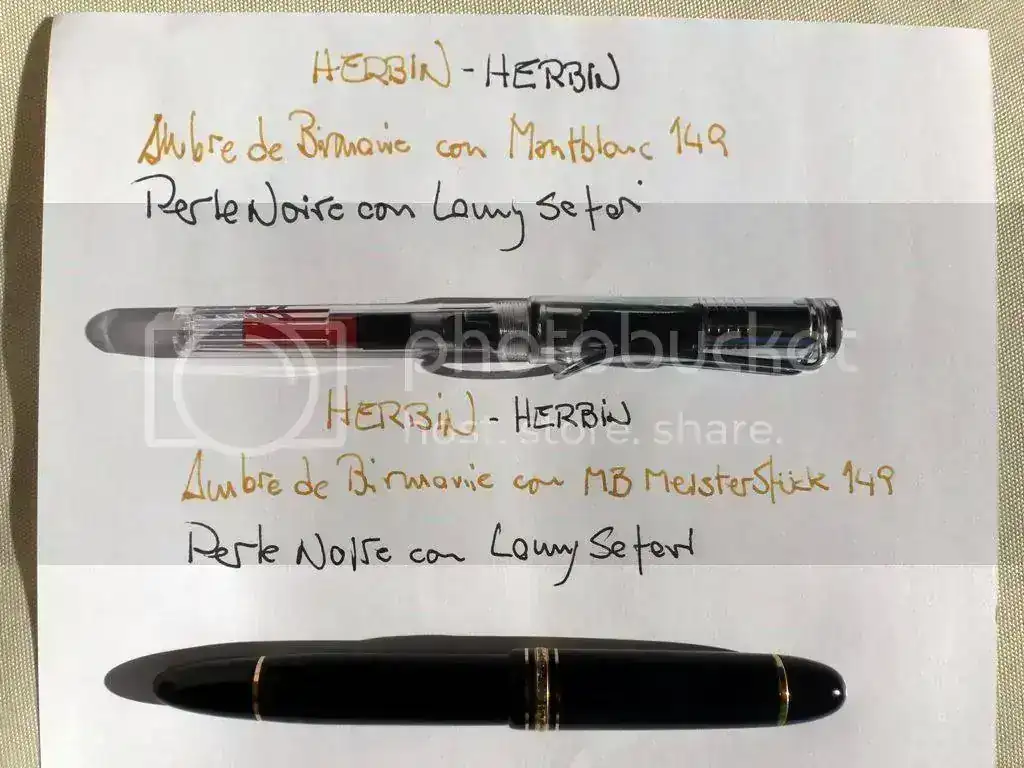 HERBIN - HERBIN
Ambre de Birmanie con Montblanc 149
Perle Noire con Lamy Safari
photobucket
HERBIN - HERBIN
host. store. share.
Ambre de Birmanie con MB Meisterstück 149
Perle Noire con Lamy Safari